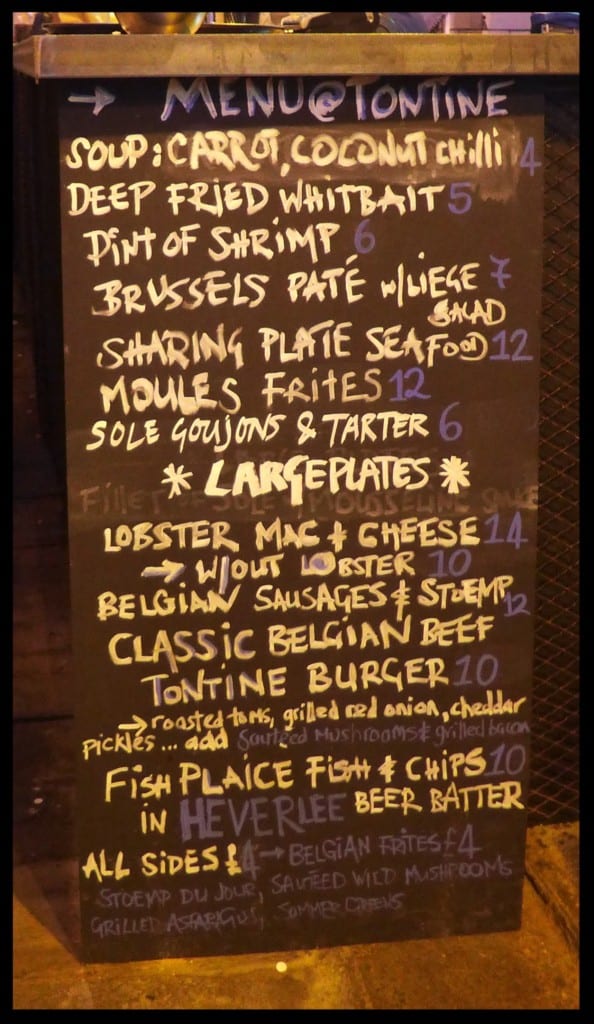 → MENU@TONTINE
SOUP: CARROT, COCONUT CHILLI 4
DEEP FRIED WHITBAIT 5
PINT OF SHRIMP 6
BRUSSELS PATÉ w/LIEGE 7
SALAD
SHARING PLATE SEAFOOD 12
MOULES FRITES 12
SOLE GOUJONS & TARTER 6
* LARGEPLATES *
LOBSTER MAC & CHEESE 14
→ W/OUT LOBSTER 10
BELGIAN SAUSAGES & STOEMP 12
CLASSIC BELGIAN BEEF
TONTINE BURGER 10
→ roasted toms, grilled red onion, cheddar
pickles... add Sauteed Mushrooms & grilled bacon
FISH PLAICE FISH & CHIPS 10
IN HEVERLEE BEER BATTER
ALL SIDES £4 → BELGIAN FRITES £4
STOEMP DU JOUR, SAUTEED WILD MUSHROOMS
GRILLED ASPARAGUS, SUMMER GREENS